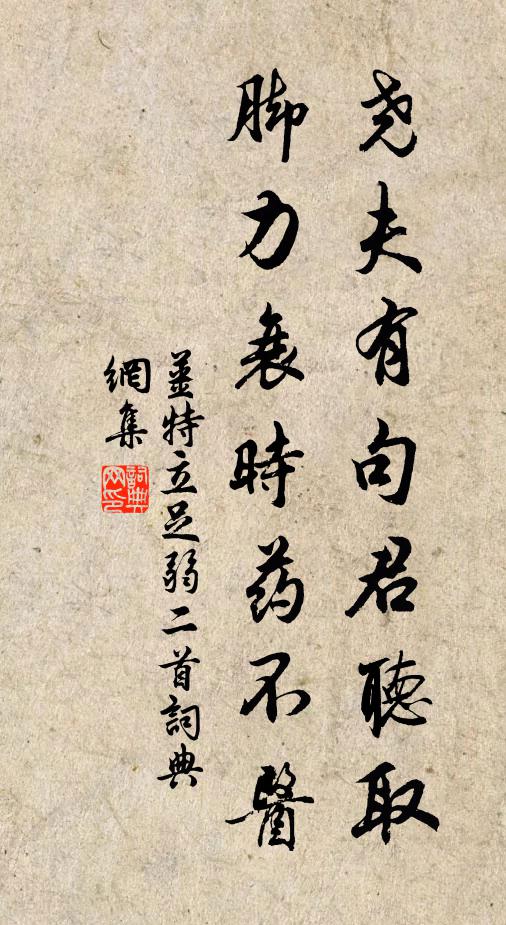 尧夫有句君聽取
脚力衰時药不醫
姜特立足弱二首詞典
網集
詞典
网印